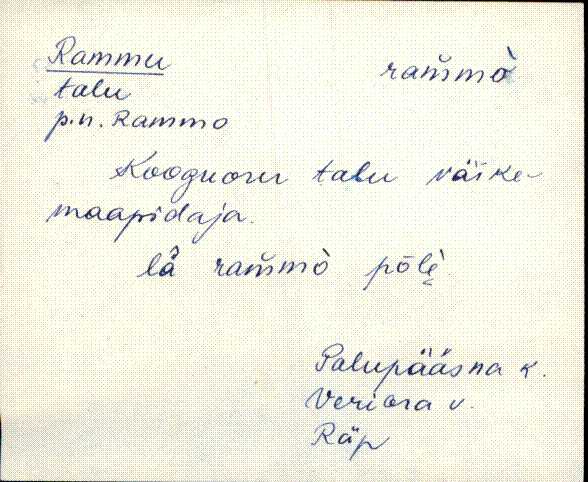 Rammu ram̆mò
talu
p.n. Rammo
Kooguoru talu väike-
maapidaja.
lä̀ ram̆mò pōlè̬
Palupääsna k.
Veriora v.
Räp